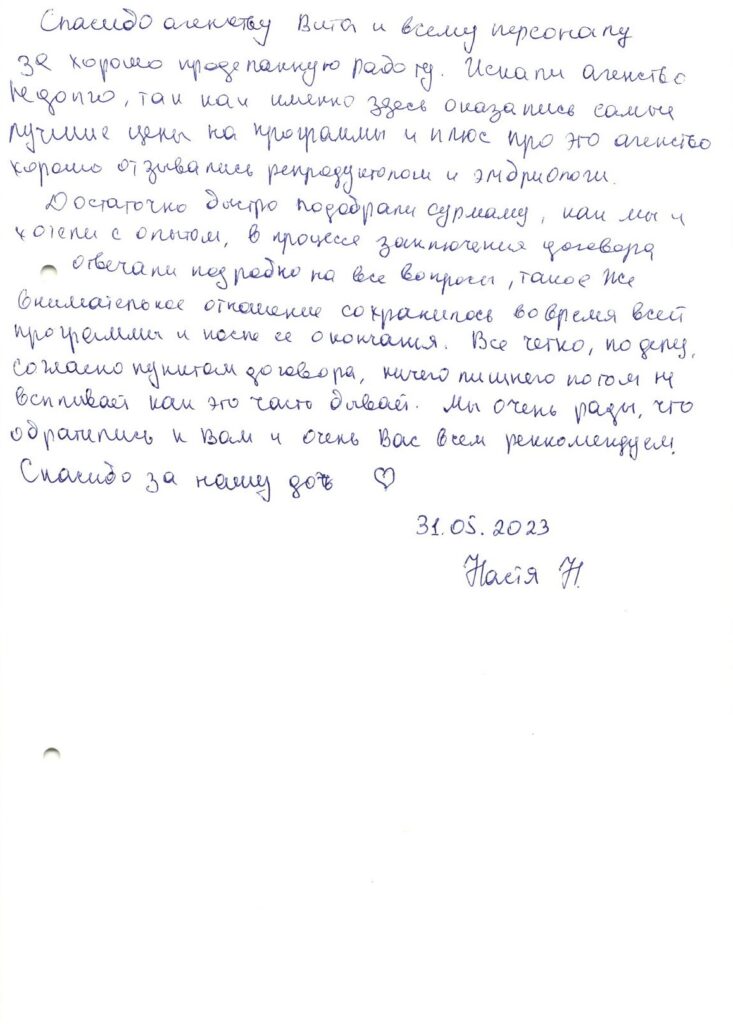 Спасибо агенству Вита и всему персоналу
за хорошо проделанную работу. Искали агенство
недолго, так как именно здесь оказались самые
лучшие цены на программы и плюс про это агенство
хорошо отзывались репродуктологи и эмбриологи.
Достаточно быстро подобрали сурмаму, как мы и
хотели с опытом, в процессе заключения договора
отвечали подробно на все вопросы, такое же
внимательное отношение сохранилось во время всей
программы и после её окончания. Все четко, по делу,
согласно пунктам договора, ничего лишнего потом не
всплывает как это часто бывает. Мы очень рады, что
обратились к Вам и очень Вас всем реккомендуем.
Спасибо за нашу дочь ♡
31.05.2023
Настя Н.